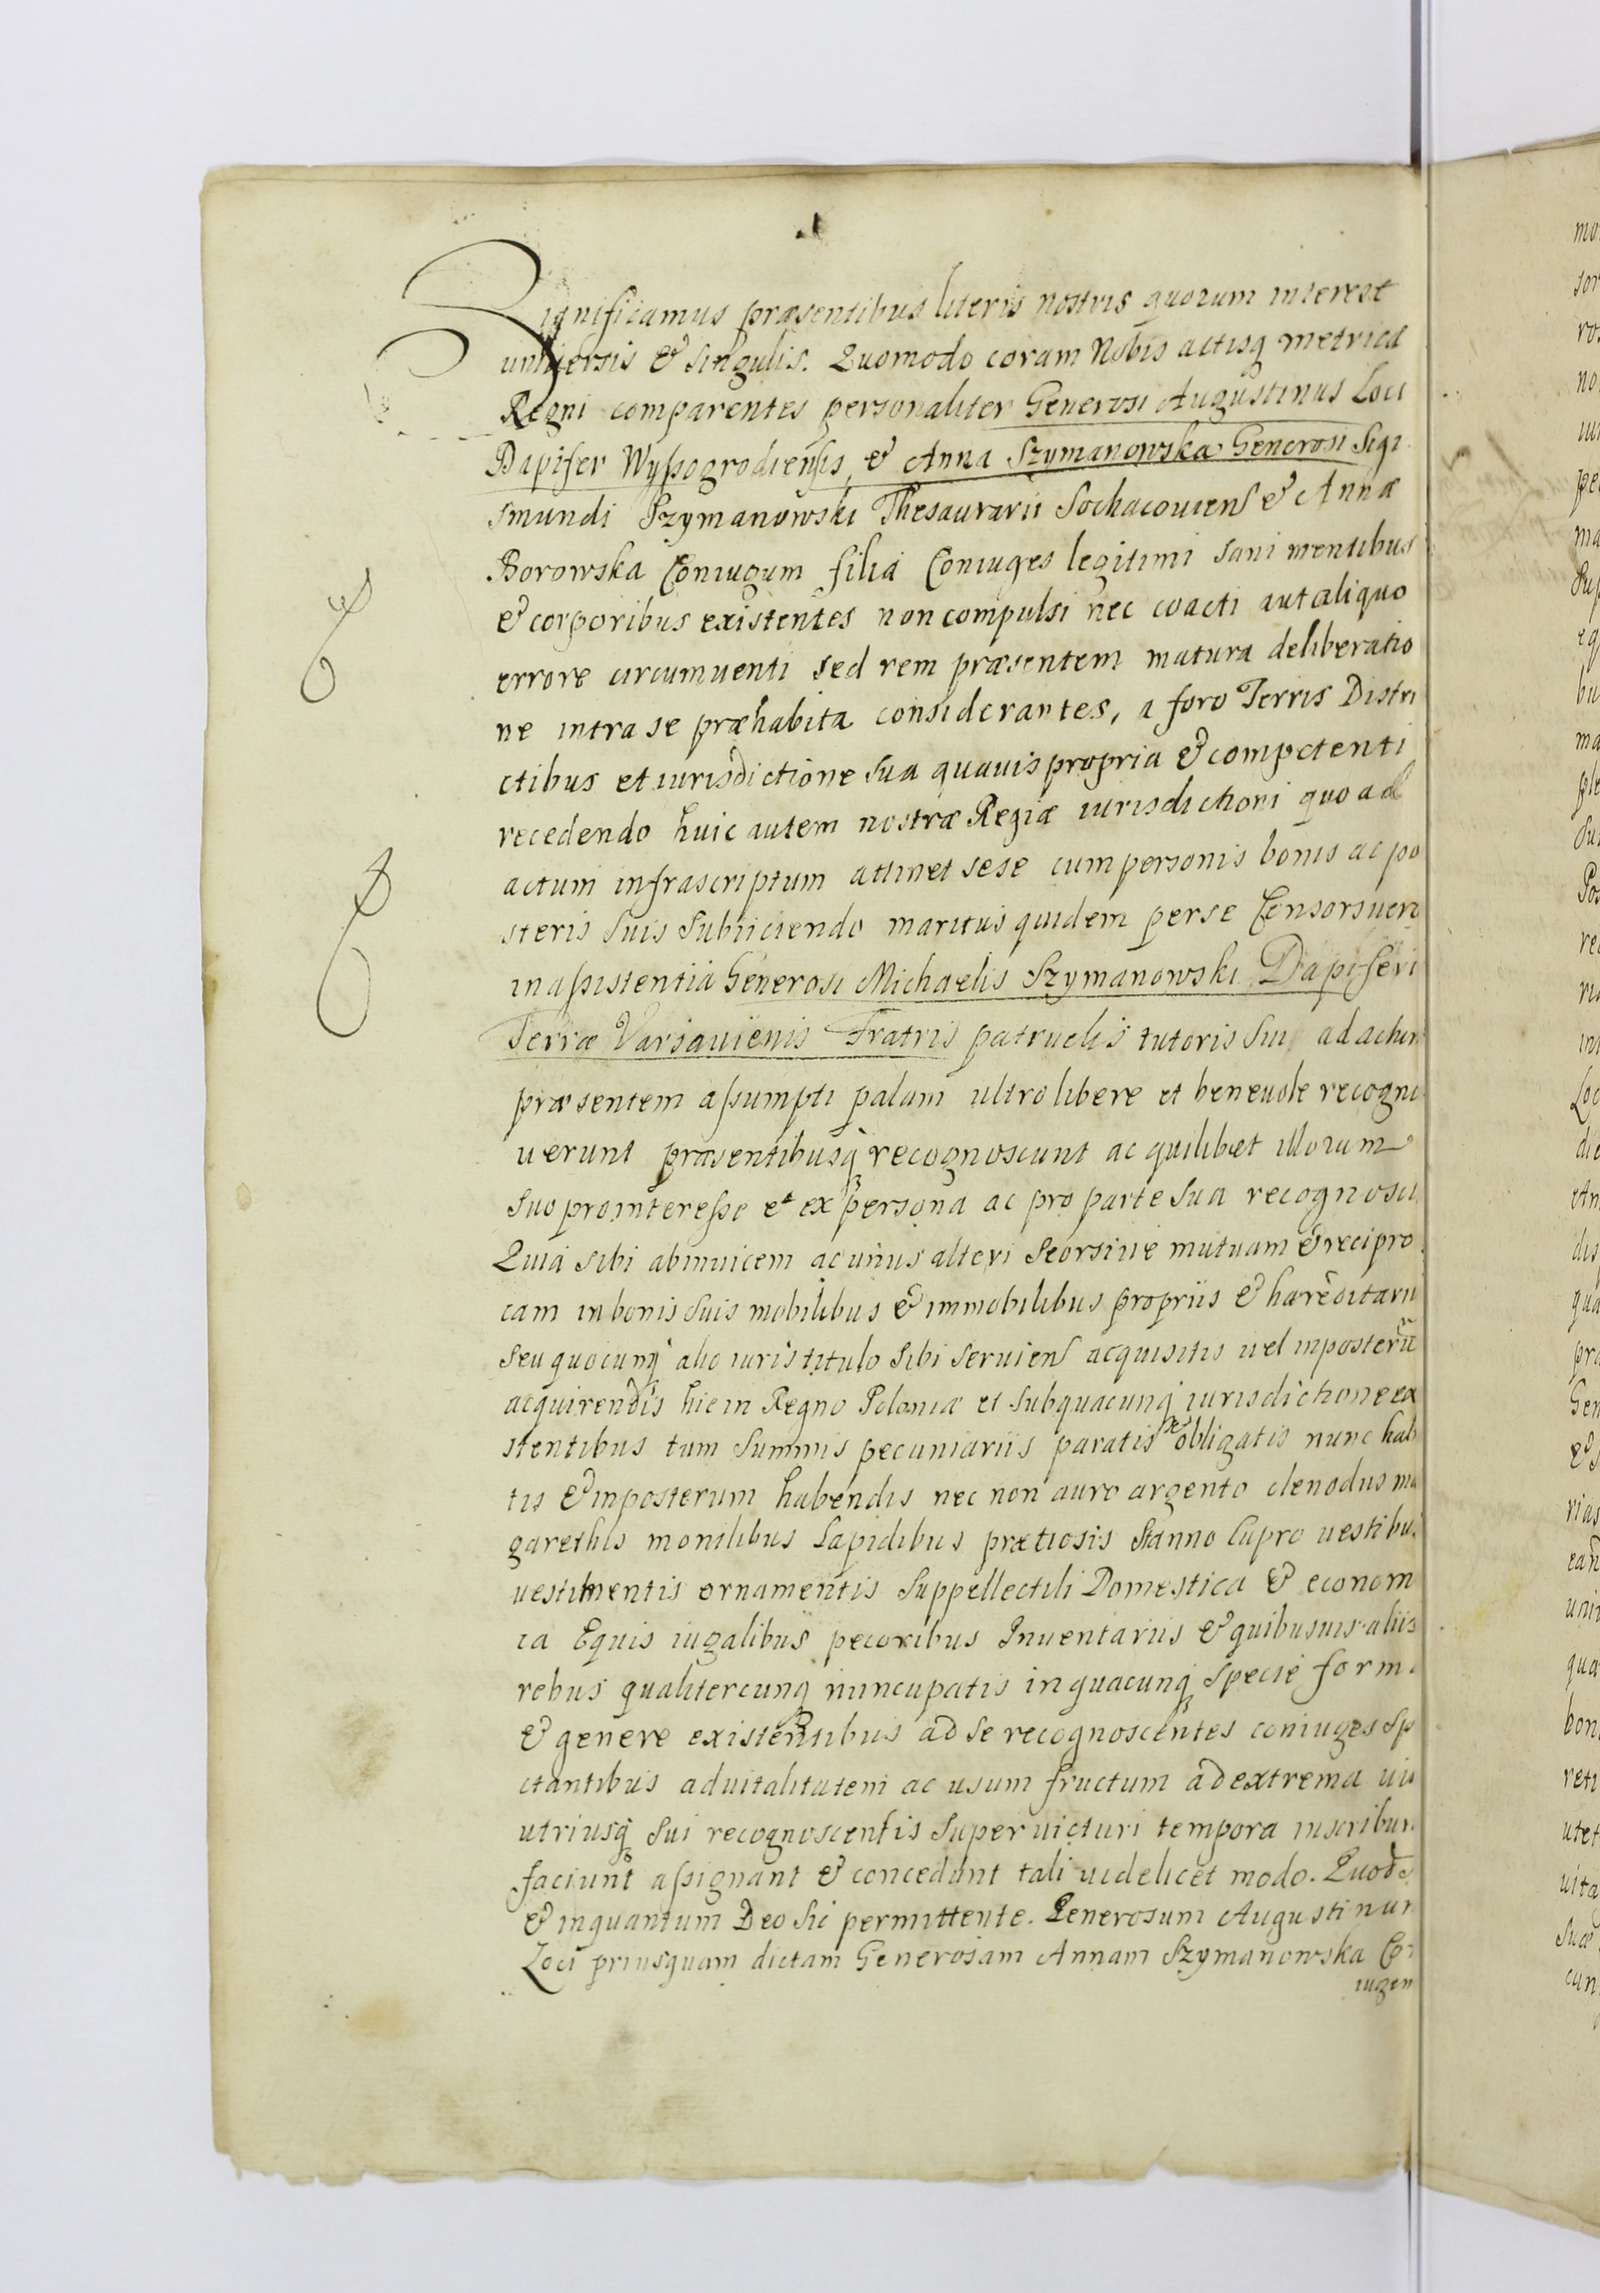 Significamus præsentibus literis nostris quorum interest
universis & singulis. Quomodo coram Nobis actisq metricæ
Regni comparentes personaliter Generosi Augustinus Loci
Dapifer Wyssogrodiensis, & Anna Szymanowska Generosi Sigi
smundi Szymanowski Thesaurarii Sochacouiens & Annæ
Borowska Coniugum filia Coniuges legitimi sani mentibus
& corporibus existentes non compulsi nec coacti aut aliquo
errore circumuenti sed rem præsentem matura deliberatio
ne intra se præhabita considerantes, a foro Terris Distri
ctibus et iurisdictione sua quauis propria & competenti
recedendo huic autem nostræ Regiæ iurisdictioni quo ad
actum infrascriptum attinet sese cum personis bonis ac po
steris suis subiiciendo maritus quidem per se Consors uero
in assistentia Generosi Michaelis Szymanowski Dapiferi
Terræ Varsauienis Fratris patruelis tutoris sui ad actum
præsentem assumpti palam ultro libere et beneuole recogno
uerunt præsentibusq recognoscunt ac quilibet illorum
suo pro interesse et ex persona ac pro parte sua recognosci
Quia sibi abinuicem ac unus alteri seorsiue mutuam & recipro
cam in bonis suis mobilibus & immobilibus propriis & hæreditarii
seu quocunq alio iuris titulo sibi seruiens acquisitis uel inposterū
acquirendis hic in Regno Poloniæ et sub quacunq iurisdictione exi
stentibus tum summis pecuniariis paratis & obligatis nunc habi
tis & inposterum habendis nec non auro argento clenodiis ma
garethis monilibus lapidibus prætiosis stanno cupro uestibus
uestimentis ornamentis suppellectili Domestica & econom
ica Equis iugalibus pecoribus Inuentariis & quibusuis aliis
rebus qualitercunq nuncupatis in quacunq specie forma
& genere existentibus ad se recognoscentes coniuges sp
ctantibus aduitalitatem ac usum fructum ad extrema ui
utriusq sui recognoscentis superuicturi tempora inscribun
faciunt assignant & concedunt tali uidelicet modo. Quod s
& inquantum Deo sic permittente. Generosum Augustinum
Loci priusquam dictam Generosam Annam Szymanowska Co
iugem